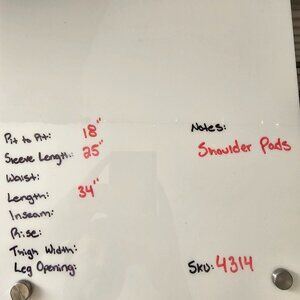 Pit to Pit: 18"
Sleeve Length: 25"
Waist:
Length: 34"
Inseam:
Rise:
Thigh Width:
Leg Opening:
Notes:
Shoulder Pads
SKU: 4314